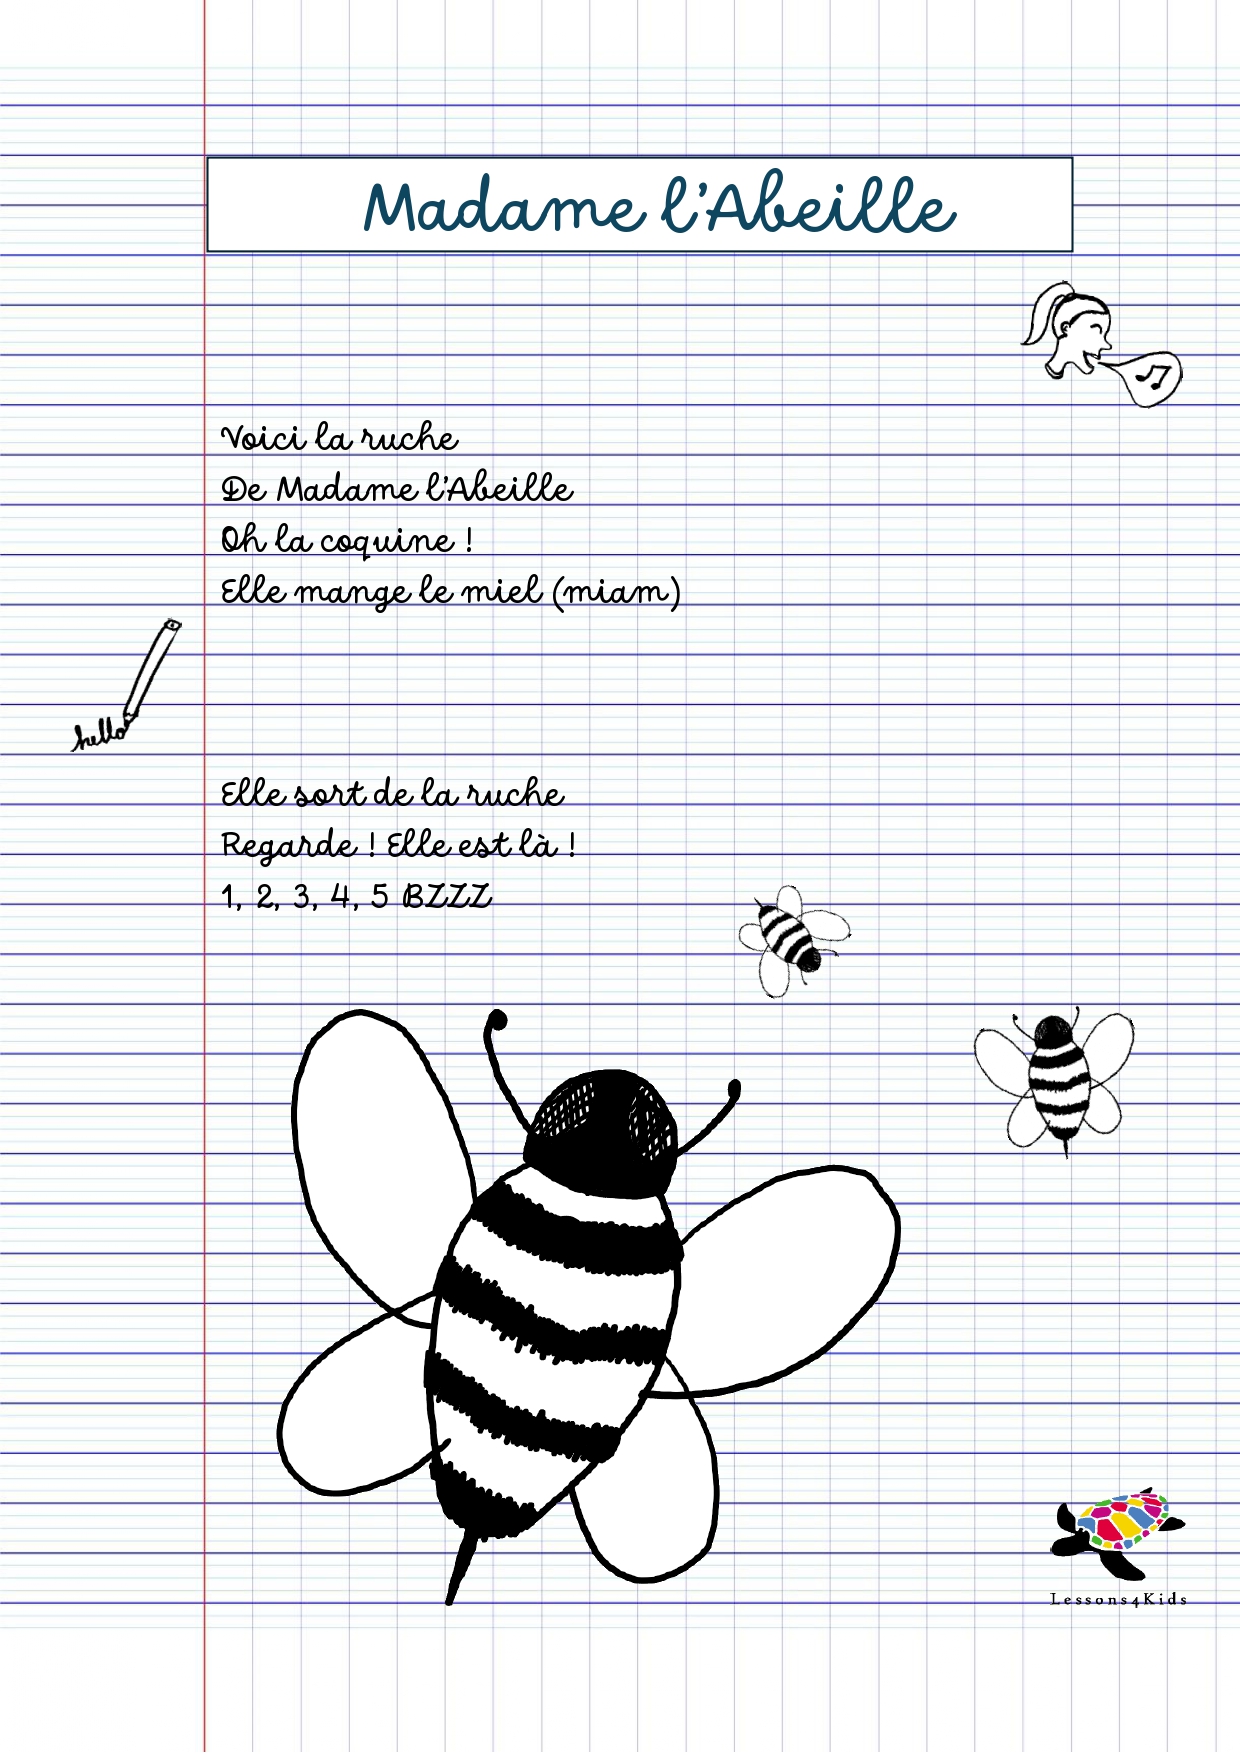 Madame l'Abeille
Voici la ruche
De Madame l'Abeille
Oh la coquine !
Elle mange le miel (miam)
hello
Elle sort de la ruche
Regarde ! Elle est là !
1, 2, 3, 4, 5 BZZZ
Lessons4Kids